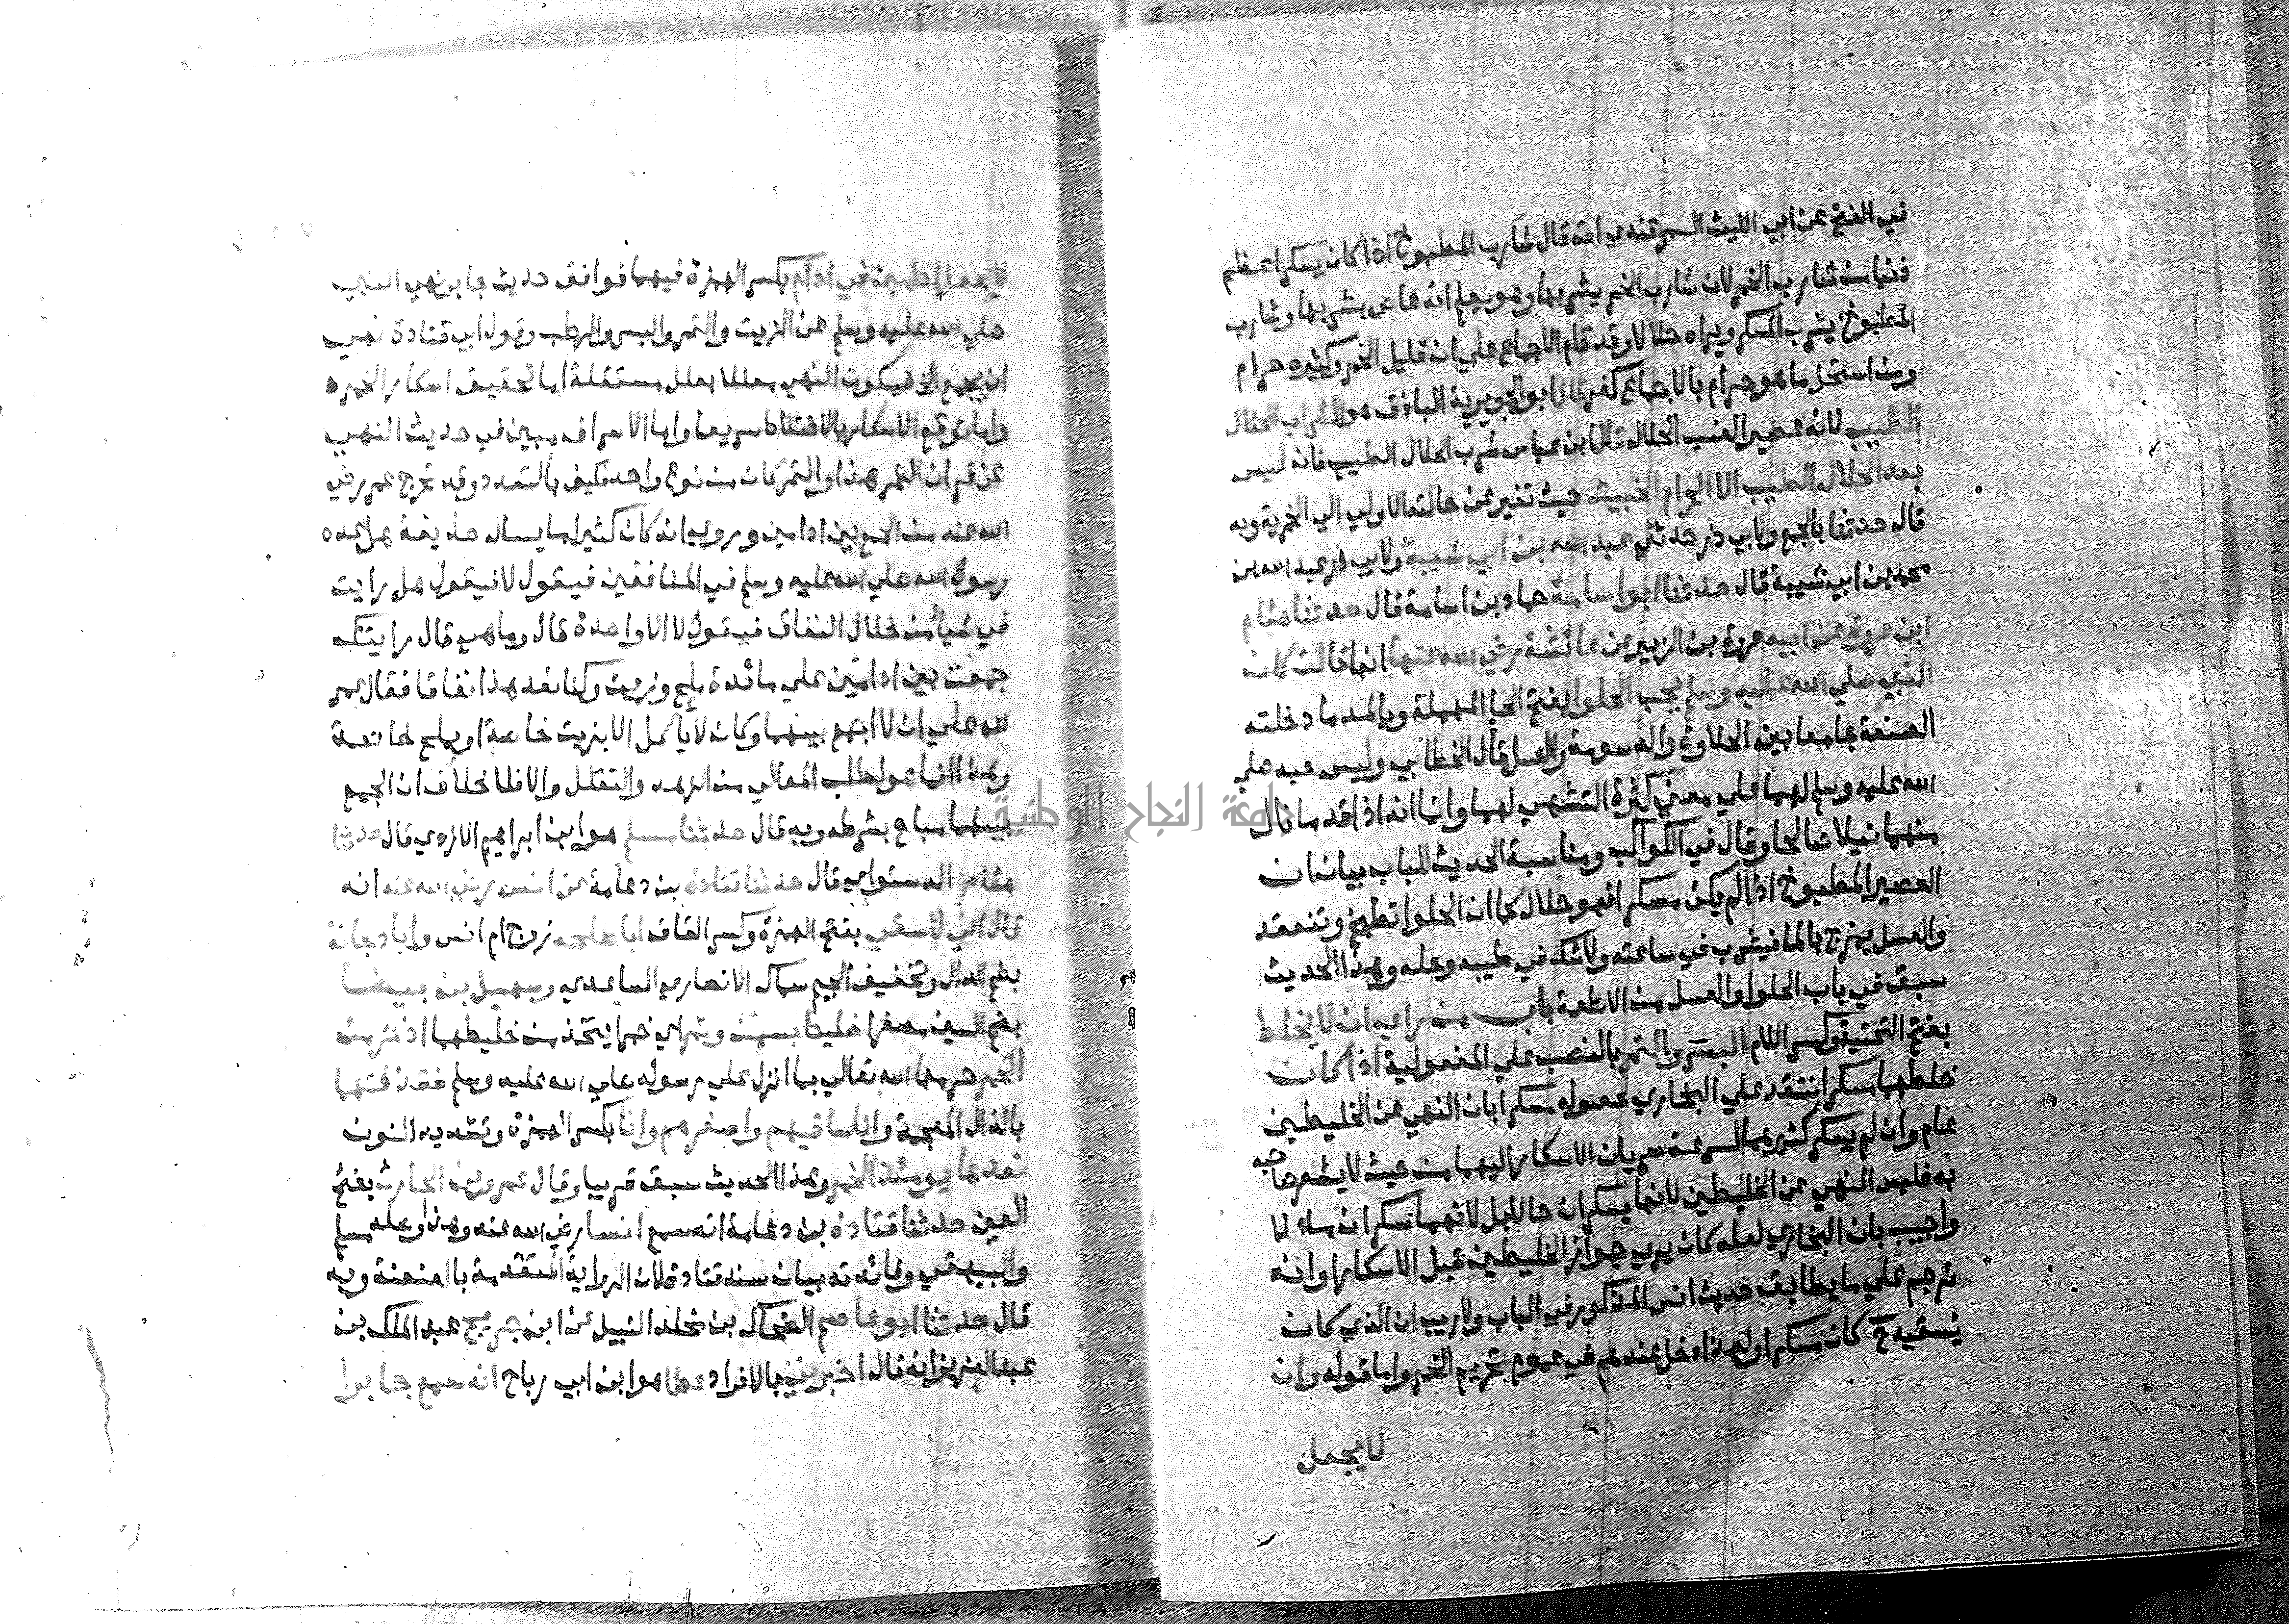 في الفتح عن ابي الليث السمرقندي انه قال شارب المطبوخ اذا كان يسكر اعظم
ذنبا من شارب الخمر لان شارب الخمر يشربها وهو يعلم انه عاص بشربها وشارب
المطبوخ يشرب المسكر ويراه حلالا وقد قام الاجماع علي ان قليل الخمر وكثيره حرام
ومن استحل ما هو حرام بالاجماع كفر قال ابو الجويرية الباذق هو الشراب الحلال
الطيب لانه عصير العنب الحلال قال ابن عباس شرب الحلال الطيب فانه ليس
بعد الحلال الطيب الا الحرام الخبيث حيث تغير عن حالته الاولي الي الخمرية وبه
قال حدثنا بالجمع ولابي ذر حدثني عبد الله بن ابي شيبة ولابي ذر عبد الله بن
محمد بن ابي شيبة قال حدثنا ابو اسامة حماد بن اسامة قال حدثنا هشام
ابن عروة عن ابيه عروة بن الزبير عن عائشة رضي الله عنها انها قالت كان
النبي صلي الله عليه وسلم يحب الحلوا بفتح الحا المهملة وبالمد ما دخلته
الصنعة جامعا بين الحلاوة والدسومة والعسل قال الخطابي وليس حبه صلي
الله عليه وسلم لهما علي معني كثرة التشهي لهما وانما انه اذا قدما نال
منهما نيلا صالحا وقال في الكواكب ومناسبة الحديث للباب بيان ان
العصير المطبوخ اذا لم يكن مسكرا فهو حلال كما ان الحلوا تطبخ وتنعقد
والعسل يمزج بالما فيشرب في ساعته ولا شك في طيبه وحله وهذا الحديث
سبق في باب الحلوا والعسل من الاطعمة باب من راي ان لا يخلط
بفتح التحتية وكسر اللام البسر والتمر بالنصب علي المفعولية اذا كان
خلطهما مسكرا انتقد علي البخاري بحصوله مسكرا بان النهي عن الخليطين
عام وان لم يسكر كثيرهما لسرعة سريان الاسكار اليهما من حيث لا يشعر صاحبه
به فليس النهي عن الخليطين لانهما يسكران حالا بل لانهما يسكران مالا
واجيب بان البخاري لعله كان يري جواز الخليطين قبل الاسكار او انه
ترجم علي ما يطابق حديث انس المذكور في الباب ولا ريب ان الذي كان
يسقيه ح كان مسكرا ولهذا دخل عندهم في عموم تحريم الخمر واما قوله وان
لا يجعل
لا يجعل ادامين في ادام بكسر الهمزة فيهما فوافق حديث جابر نهي النبي
صلي الله عليه وسلم عن الزبيب والتمر والبسر والرطب وقول ابي قتادة نهي
ان يجمع الخ فيكون النهي معللا بعلل مستقلة اما تحقيق اسكار الخمرة
واما توقع الاسكار بالاختلاط سريعا واما الاسراف مبين في حديث النهي
عن قران التمر هذا والتمر كان من نوع واحد فكيف بالتعدد وقد تحرج عمر رضي
الله عنه من الجمع بين ادامين وروي انه كان كثيرا ما يسال حذيفة هل عده
رسول الله صلي الله عليه وسلم في المنافقين فيقول لا فيقول هل رايت
في شيأ من خلال النفاق فيقول لا الا واحدة قال وما هي قال رايتك
جمعت بين ادامين علي مائدة ملح وزيت وكنا نعد هذا نفاقا فقال عمر
لله علي ان لا اجمع بينهما وكان لا ياكل الا بزيت خاصة او بملح خاصة
وهذا انما هو طلب المعالي من الزهد والتقلل والا فلا خلاف ان الجمع
بينهما مباح بشرطه وبه قال حدثنا مسلم هو ابن ابراهيم الازدي قال حدثنا
هشام الدستواي قال حدثنا قتادة بن دعامة عن انس رضي الله عنه انه
قال اني لاسقي بفتح الهمزة وكسر القاف ابا طلحة زوج ام انس وابا دجانة
بضم الدال وتخفيف الجيم سماك الانصاري الساعدي وسهيل بن بيضا
بضم السين مصغرا خليط بسر وتمر اي خمرا يتخذ من خليطهما اذ حرمت
الخمر حرمها الله تعالي بما انزل علي رسوله صلي الله عليه وسلم فقذفتها
بالذال المعجمة وانا ساقيهم واصغرهم وانا بكسر الهمزة وتشديد النون
نعدها يومئذ الخمر وهذا الحديث سبق قريبا وقال عمرو بن الحارث بفتح
العين حدثنا قتادة بن دعامة انه سمع انسا رضي الله عنه وهذا وصله مسلم
والبيهقي وفائدته بيان سند قتادة لان الرواية المتقدمة بالعنعنة وبه
قال حدثنا ابو عاصم الضحاك بن مخلد النبيل عن ابن جريج عبد الملك بن
عبد العزيز انه قال اخبرني بالافراد عطا هو ابن ابي رباح انه سمع جابرا
جامعة النجاح الوطنية